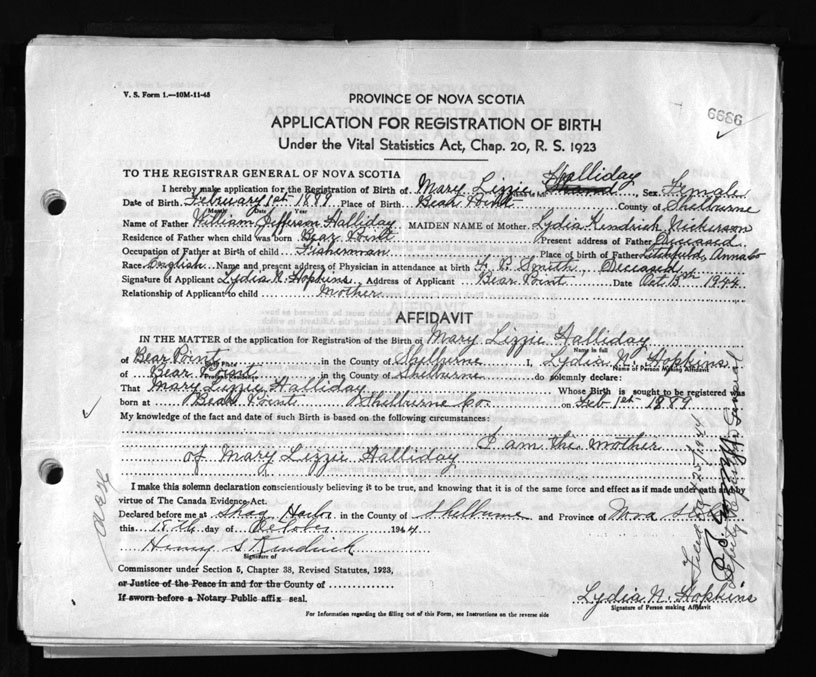 V. S. Form 1.—10M-11-43
6686
PROVINCE OF NOVA SCOTIA
APPLICATION FOR REGISTRATION OF BIRTH
Under the Vital Statistics Act, Chap. 20, R. S. 1923
TO THE REGISTRAR GENERAL OF NOVA SCOTIA
I hereby make application for the Registration of Birth of Mary Lizzie Halliday Sex Female
Date of Birth February 1st 1889 Place of Birth Bear Point County of Shelburne
Month Date Year
Name of Father William Jefferson Halliday MAIDEN NAME of Mother Lydia Kendrick Nickerson
Residence of Father when child was born Bear Point Present address of Father Deceased
Occupation of Father at Birth of child Fisherman Place of birth of Father Litchfield, Annap
Race English Name and present address of Physician in attendance at birth Smith, Deceased
Signature of Applicant Lydia N. Hopkins Address of Applicant Bear Point Date Oct. 1944
Relationship of Applicant to child Mother
AFFIDAVIT
IN THE MATTER of the application for Registration of the Birth of Mary Lizzie Halliday
Name in full
of Bear Point in the County of Shelburne I, Lydia N. Hopkins
Name of Person Making Affidavit
of Bear Point in the County of Shelburne do solemnly declare:
That Mary Lizzie Halliday Whose Birth is sought to be registered was
born at Bear Point Shelburne Co. on Feb 1st 1889
My knowledge of the fact and date of such Birth is based on the following circumstances:
I am the mother
of Mary Lizzie Halliday
I make this solemn declaration conscientiously believing it to be true, and knowing that it is of the same force and effect as if made under oath and by
virtue of The Canada Evidence Act.
Declared before me at Shag Harbor in the County of Shelburne and Province of Nova Scotia
this 18th day of October 1944
Henry S. Kendrick
Signature of
Commissioner under Section 5, Chapter 38, Revised Statutes, 1923,
or Justice of the Peace in and for the County of
If sworn before a Notary Public affix seal.
Lydia N. Hopkins
Signature of Person making Affidavit
For Information regarding the filling out of this Form, see Instructions on the reverse side
Filed Oct 25/1944
Deputy Registrar General